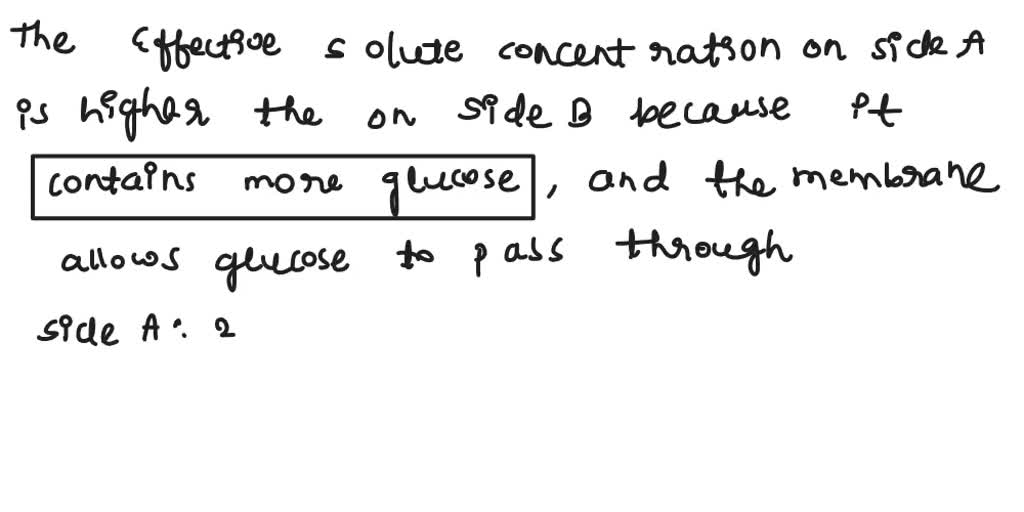 The Effective solute concentration on side A
is higher the on side B because it
contains more glucose, and the membrane
allows glucose to pass through
side A: 2